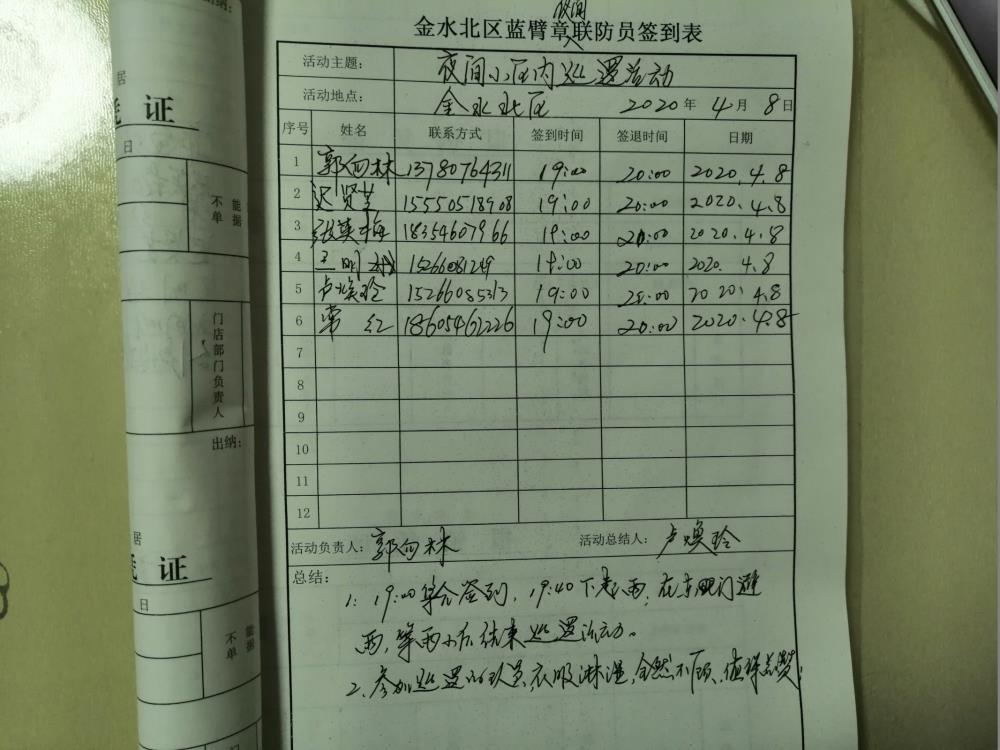 夜间
金水北区蓝臂章联防员签到表
活动主题: 夜间小区内巡逻活动
活动地点: 金水北区 2020年 4月 8日
序号 姓名 联系方式 签到时间 签退时间 日期
1 郭向林 13780764311 19:00 20:00 2020.4.8
2 迟贤芝 15550518908 19:00 20:00 2020.4.8
3 张英梅 18354607966 19:00 20:00 2020.4.8
4 王明 15266081249 19:00 20:00 2020.4.8
5 卢焕玲 15266085313 19:00 20:00 2020.4.8
6 常红 18605462226 19:00 20:00 2020.4.8
7
8
9
10
11
12
活动负责人: 郭向林 活动总结人: 卢焕玲
总结:
1: 19:00集合签到, 19:40下起雨, 在东门避
雨, 等雨小后结束巡逻活动。
2、参加巡逻的队员, 衣服淋湿, 全然不顾、值得点赞!
居
证
日
不单
能据
门店部门负责人
出纳:
居
凭证
日
不单
能据